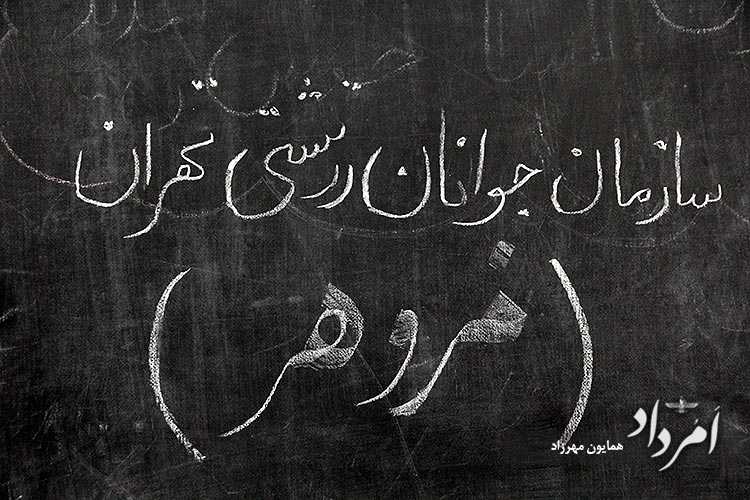 سازمان جوانان زرتشتی تهران
(فروهر)
اَمُرداد
همایون مهرزاد